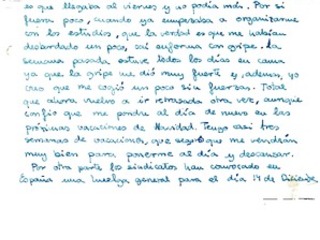 es que llegaba al viernes y no podía más. Por si
fuera poco, cuando ya empezaba a organizarme
con los estudios, que la verdad es que me habían
desbordado un poco, caí enferma con gripe. La
semana pasada estuve todos los días en cama
ya que la gripe me dió muy fuerte y, además, yo
creo que me cogió un poco sin fuerzas. Total
que ahora vuelvo a ir retrasada otra vez, aunque
confío que me pondré al día de nuevo en las
próximas vacaciones de Navidad. Tengo casi tres
semanas de vacaciones, que seguro que me vendrán
muy bien para ponerme al día y descansar.
Por otra parte los sindicatos han convocado en
España una huelga general para el día 14 de Diciembre